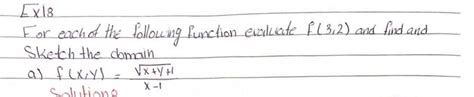 Ex18
For each of the following function evaluate f(3,2) and find and
Sketch the domain
a) f(x,y) = √x+y+1 / x-1
Solutions